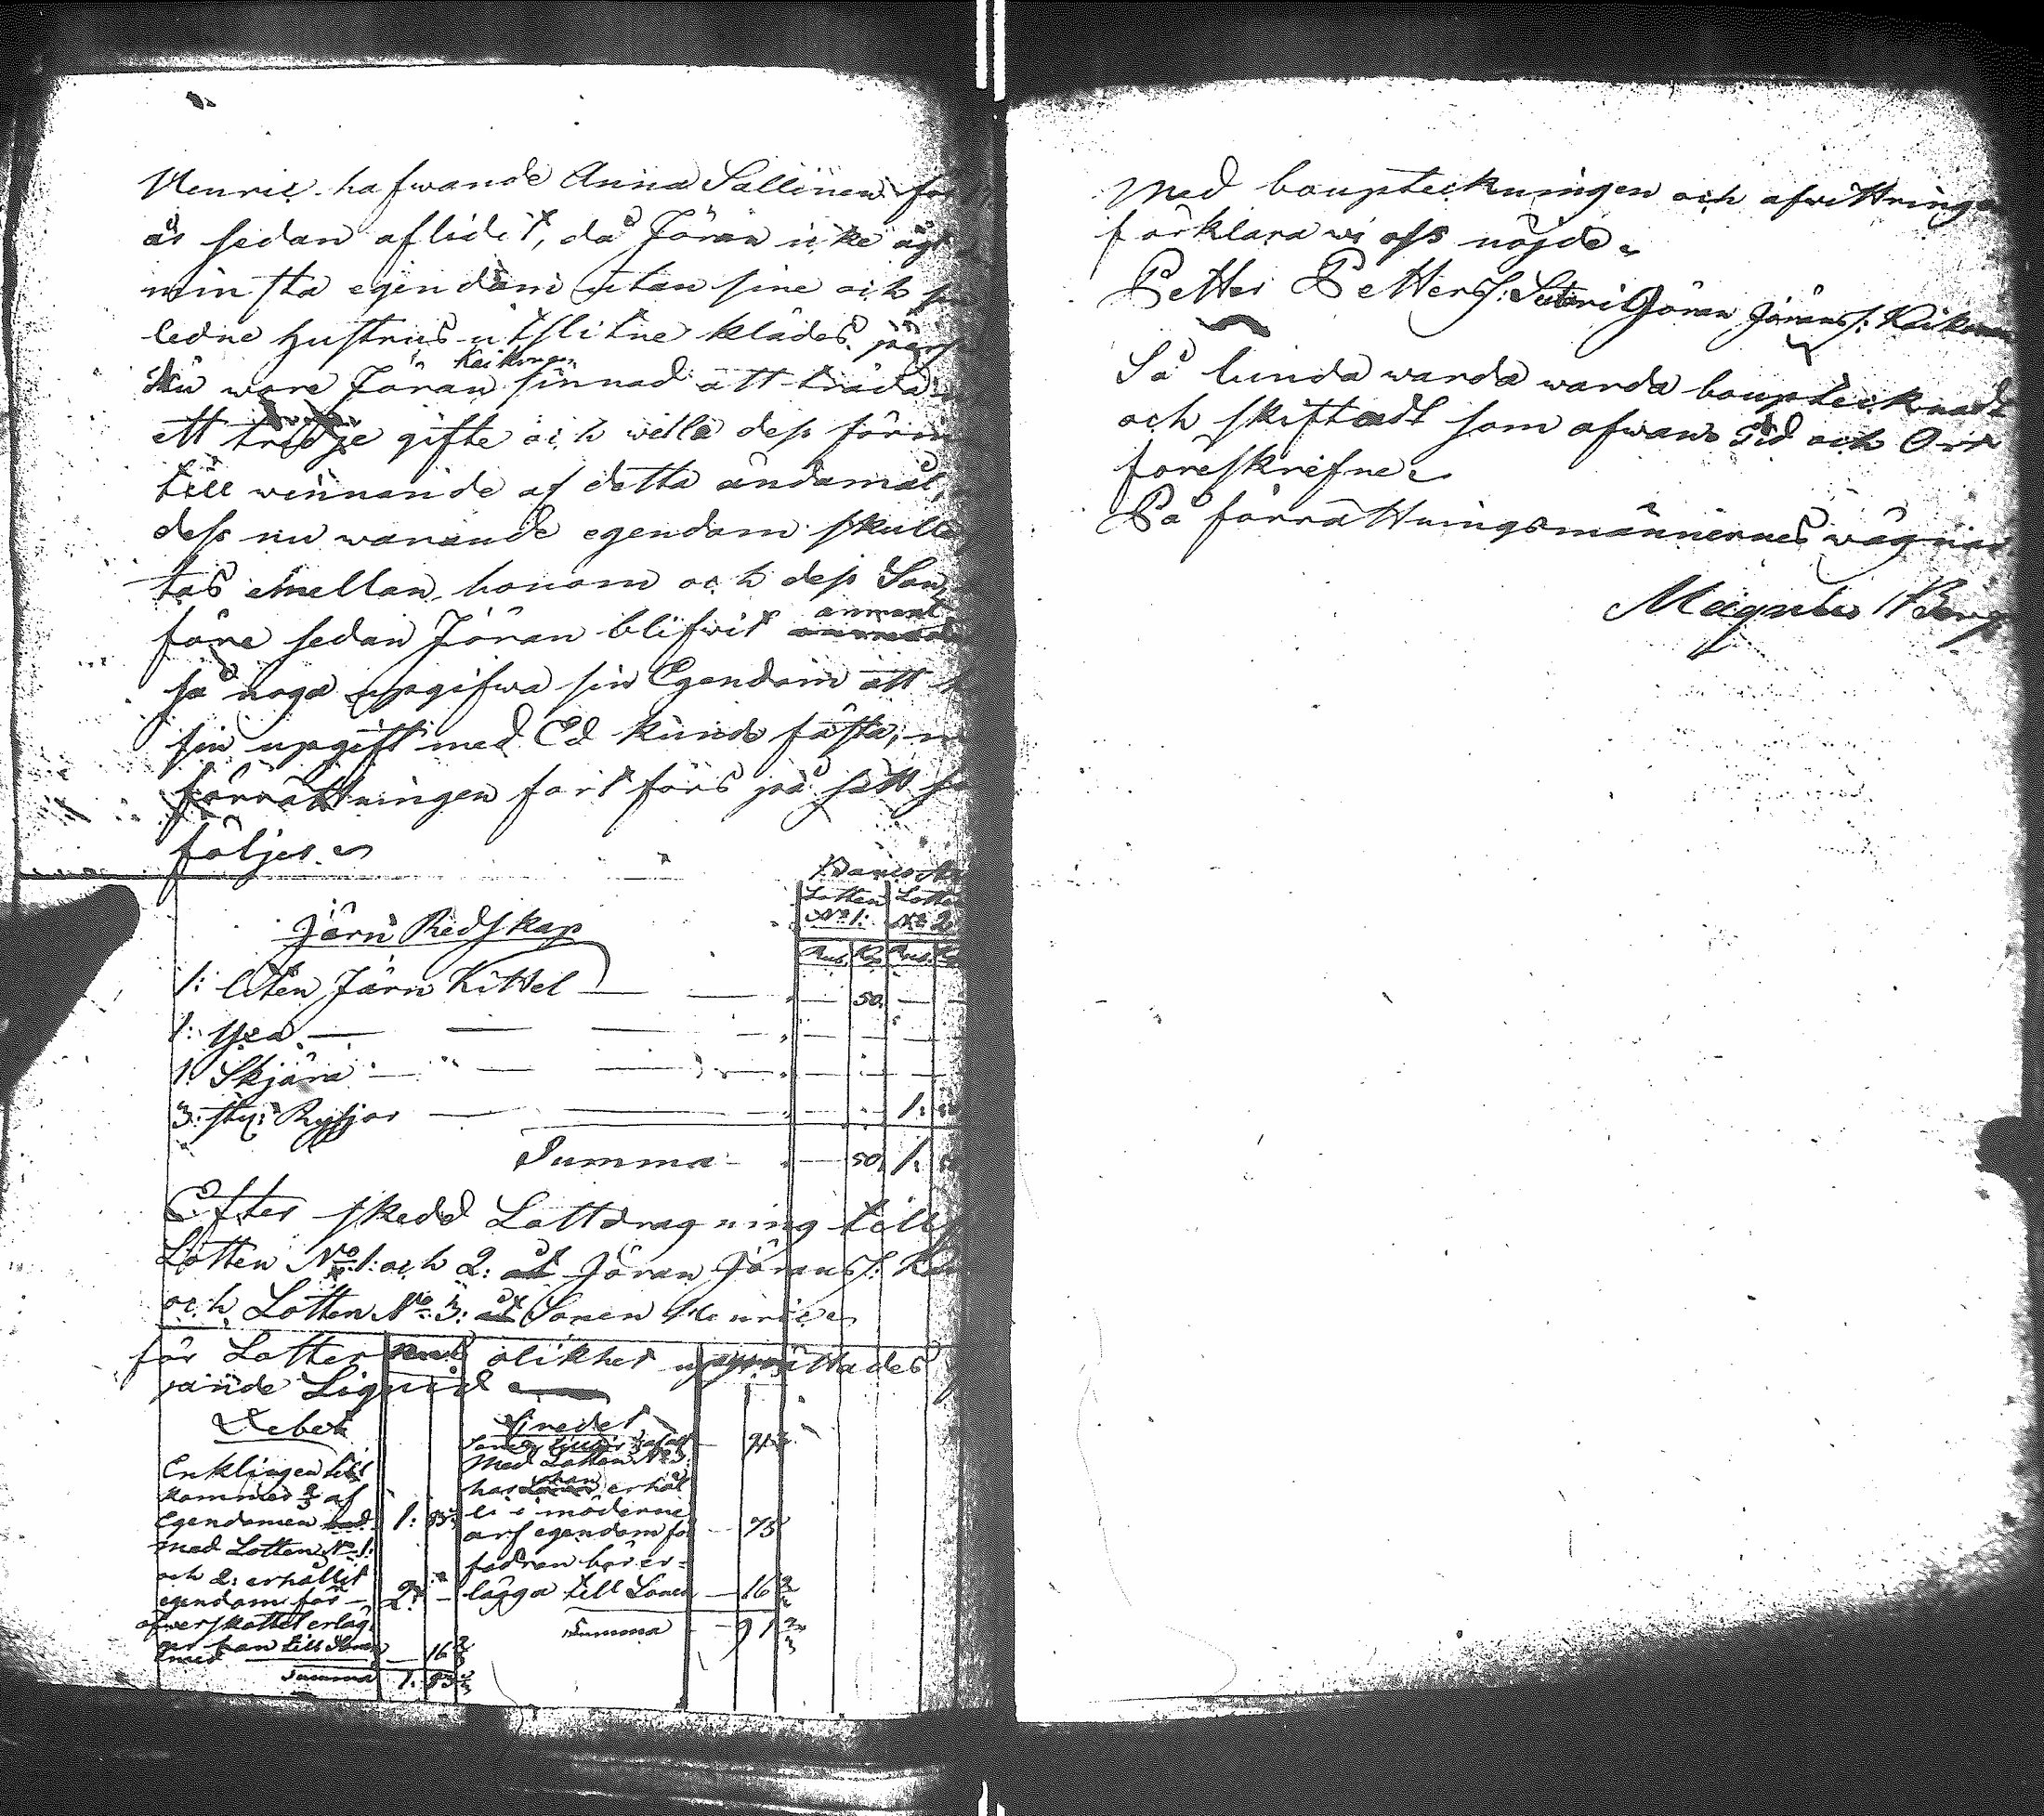 Henric hafwande Anna Sallinen för
år sedan aflidit, då Jöran icke ägt
minsta egendom utan sine och
ledne hustrus utslitne kläder.
Nu wore Jöran Kaikonen sinnad att träda
ett tredje gifte och wille dess förm
till winnande af detta ändamål,
dess nu warande egendom skulle
tas emellan honom och dess Son,
före sedan Jöran blifwit
så noga upgifwa sin Egendom att
sin upgift med Ed kunde fästa,
förrättningen fort förs på sätt
följer
Banco
Lotten Lotten
No 1: No 2
Järn Redskap
Rub. Kop Rub.
1: liten Järn Kittel — — 50. —
1: Yxa — — —
1: Skjära — — —
3: sty: Ryssjor — — 1:
Summa — 50. 1:
Efter skedd Lottdragning
Lotten No 1: och 2: åt Jöran Jöransf:
och Lotten No 3: åt Sonen Henric
för Lotternes olikhet upprättades
rande Liquid
Debet
Enklingen till
kommer 2/3 af
Egendomen 1: 83
med Lotten No 1:
och 2: erhållit
egendom för — 2: —
öfwerskottet erläg
ger han till Sonen
— 16 2/3
Summa 1: 83 1/3
Credet
— 91 2/3
Med Lotten No 3:
har han erhål
li i möderne
arf egendom för — 75
fadren bör er-
lägga till Sonen — 16 2/3
Summa — 91 2/3
Med boupteckningen och afwittringen
förklara wi oss nöjde
Petter Petters: Suteri Göran Jöransf: Kaikonen
Så lunda warda warda bouptecknadt
och skiftadt som ofwan Tid och Ort
föreskrifne
På förrättningsmännernes wägnar
Magnus Berg